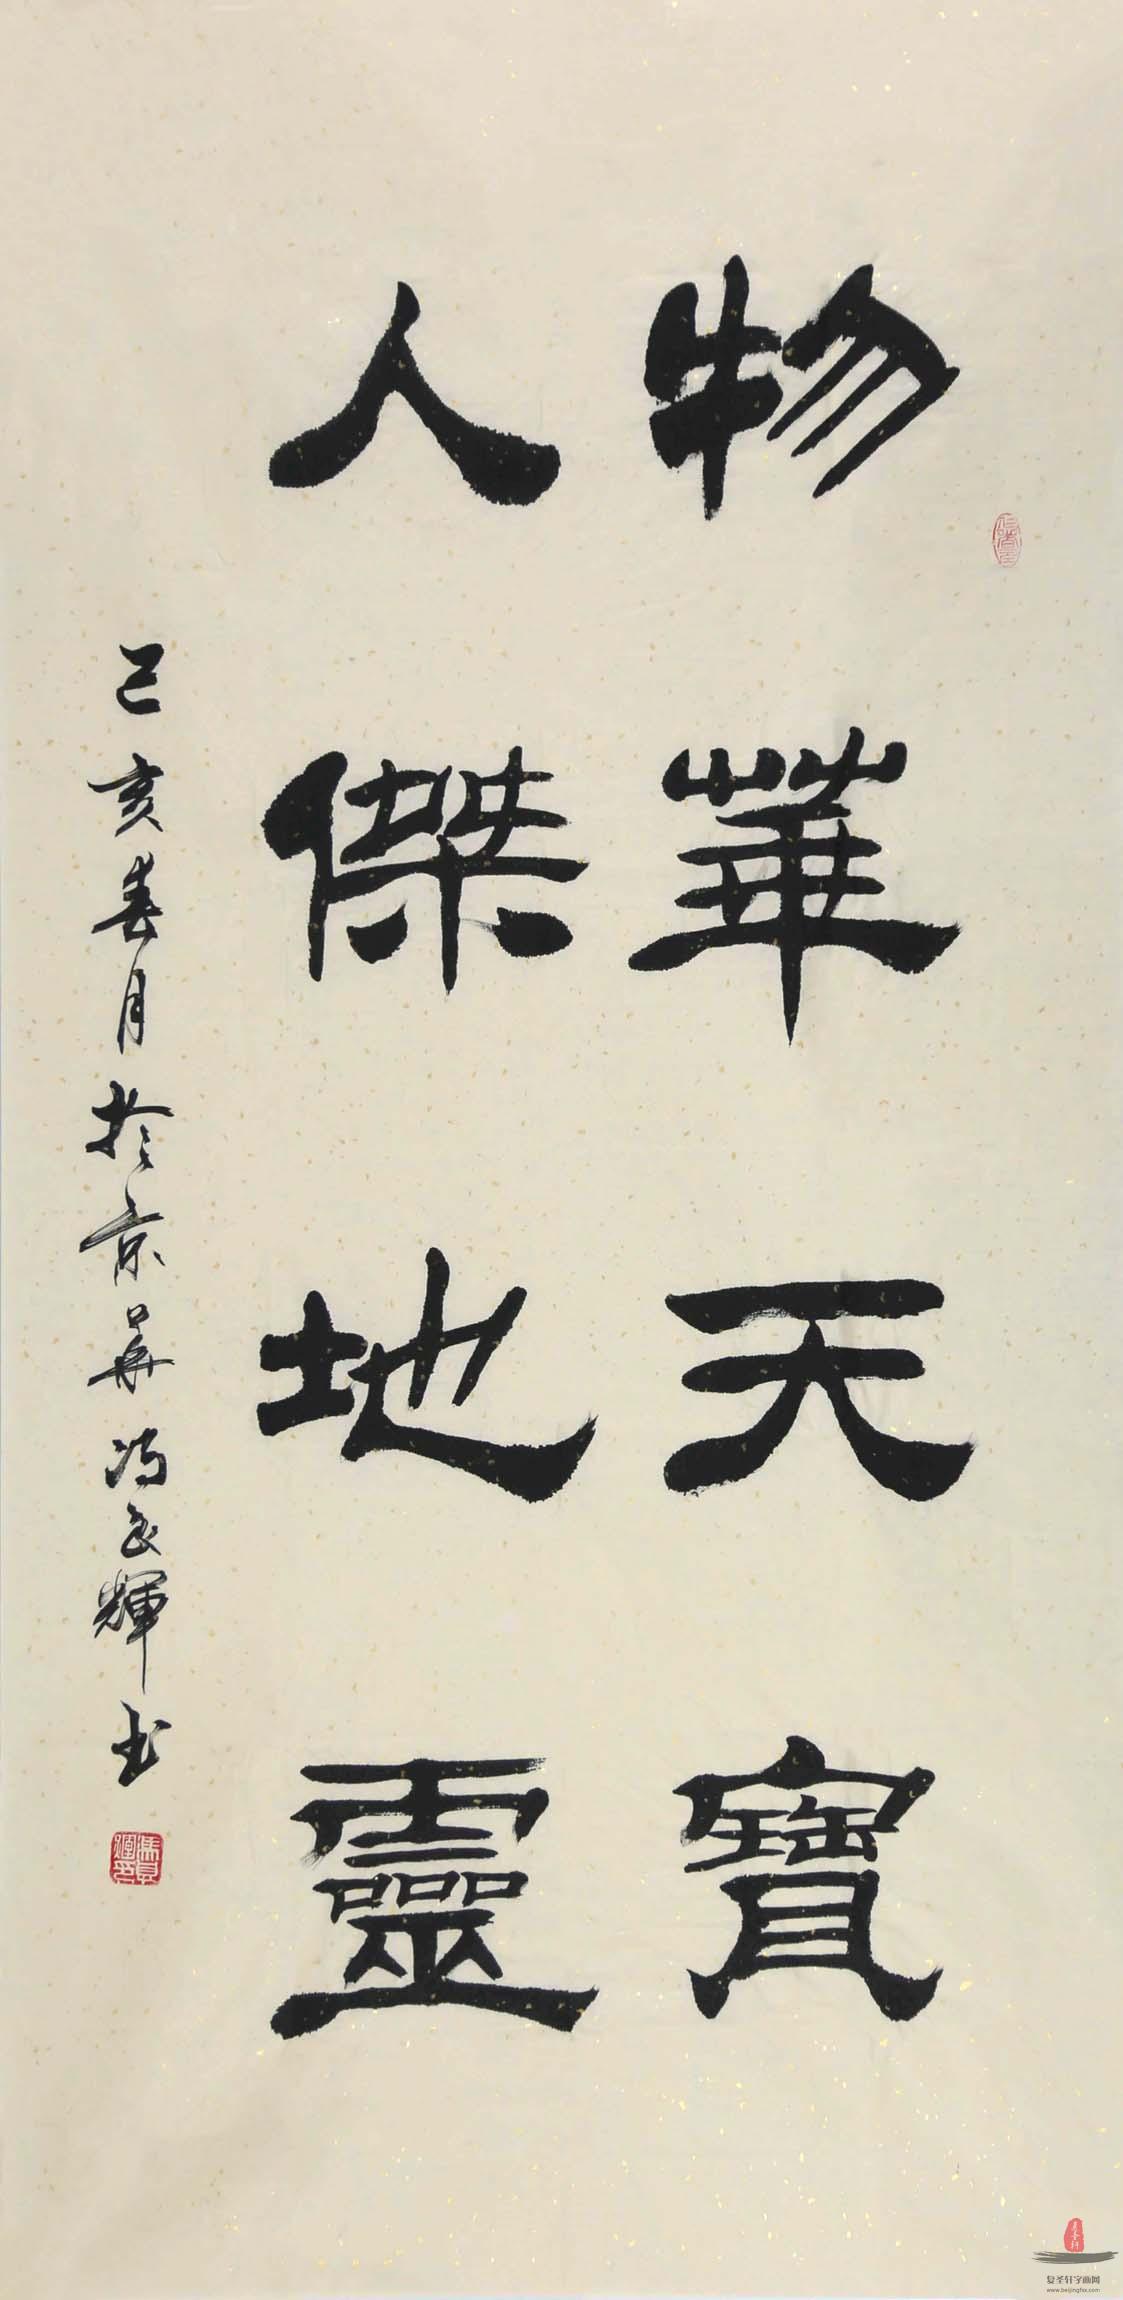 物華天寶
人傑地靈
己亥春月於京華馮輝书
复圣轩字画网
www.beijingfsx.com